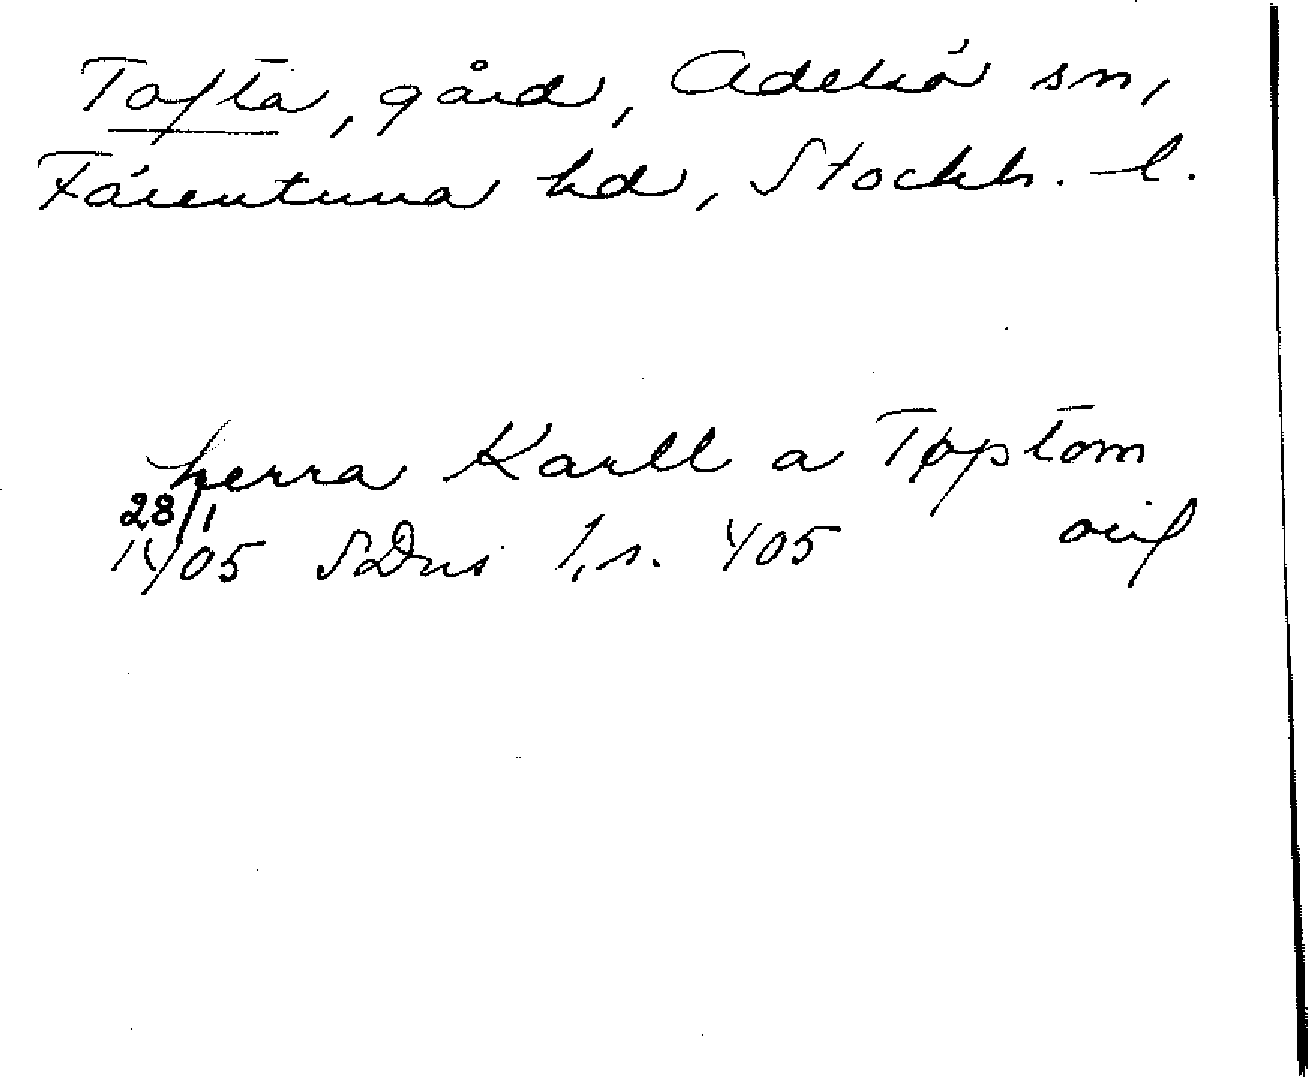 Tofta, gård, Adelsö sn,
Färentuna hd, Stockh. l.
herra Karll a Tøptom
28/1
1405 SDns 1, s. 405 orig